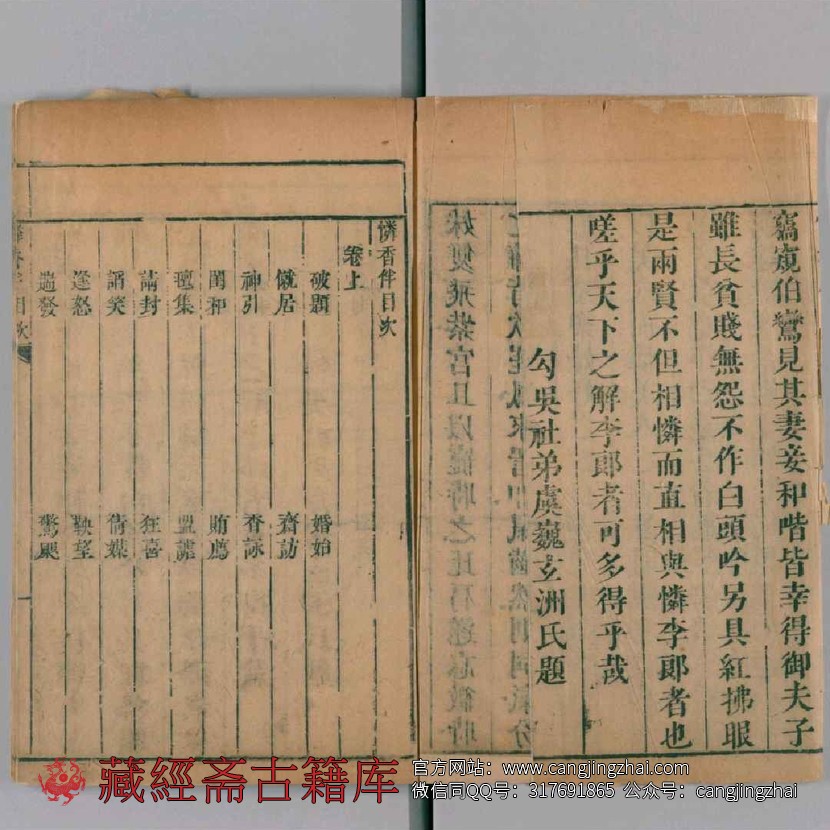 竊窺伯鸞見其妻妾和喈皆幸得御夫子
雖長貧賤無怨不作白頭吟另具紅拂眼
是兩賢不但相憐而直相與憐李郎者也
嗟乎天下之解李郎者可多得乎哉
勾吳社弟虞巍玄洲氏題
憐香伴目次
卷上
破題 婚始
僦居 齋訪
神引 香詠
閨和 賄薦
氊集 盟謔
請封 狂喜
誚笑 倩媒
逢怒 鞅望
遄發 驚颶
藏經斋古籍库
官方网站：www.cangjingzhai.com
微信同QQ号：317691865 公众号：cangjingzhai